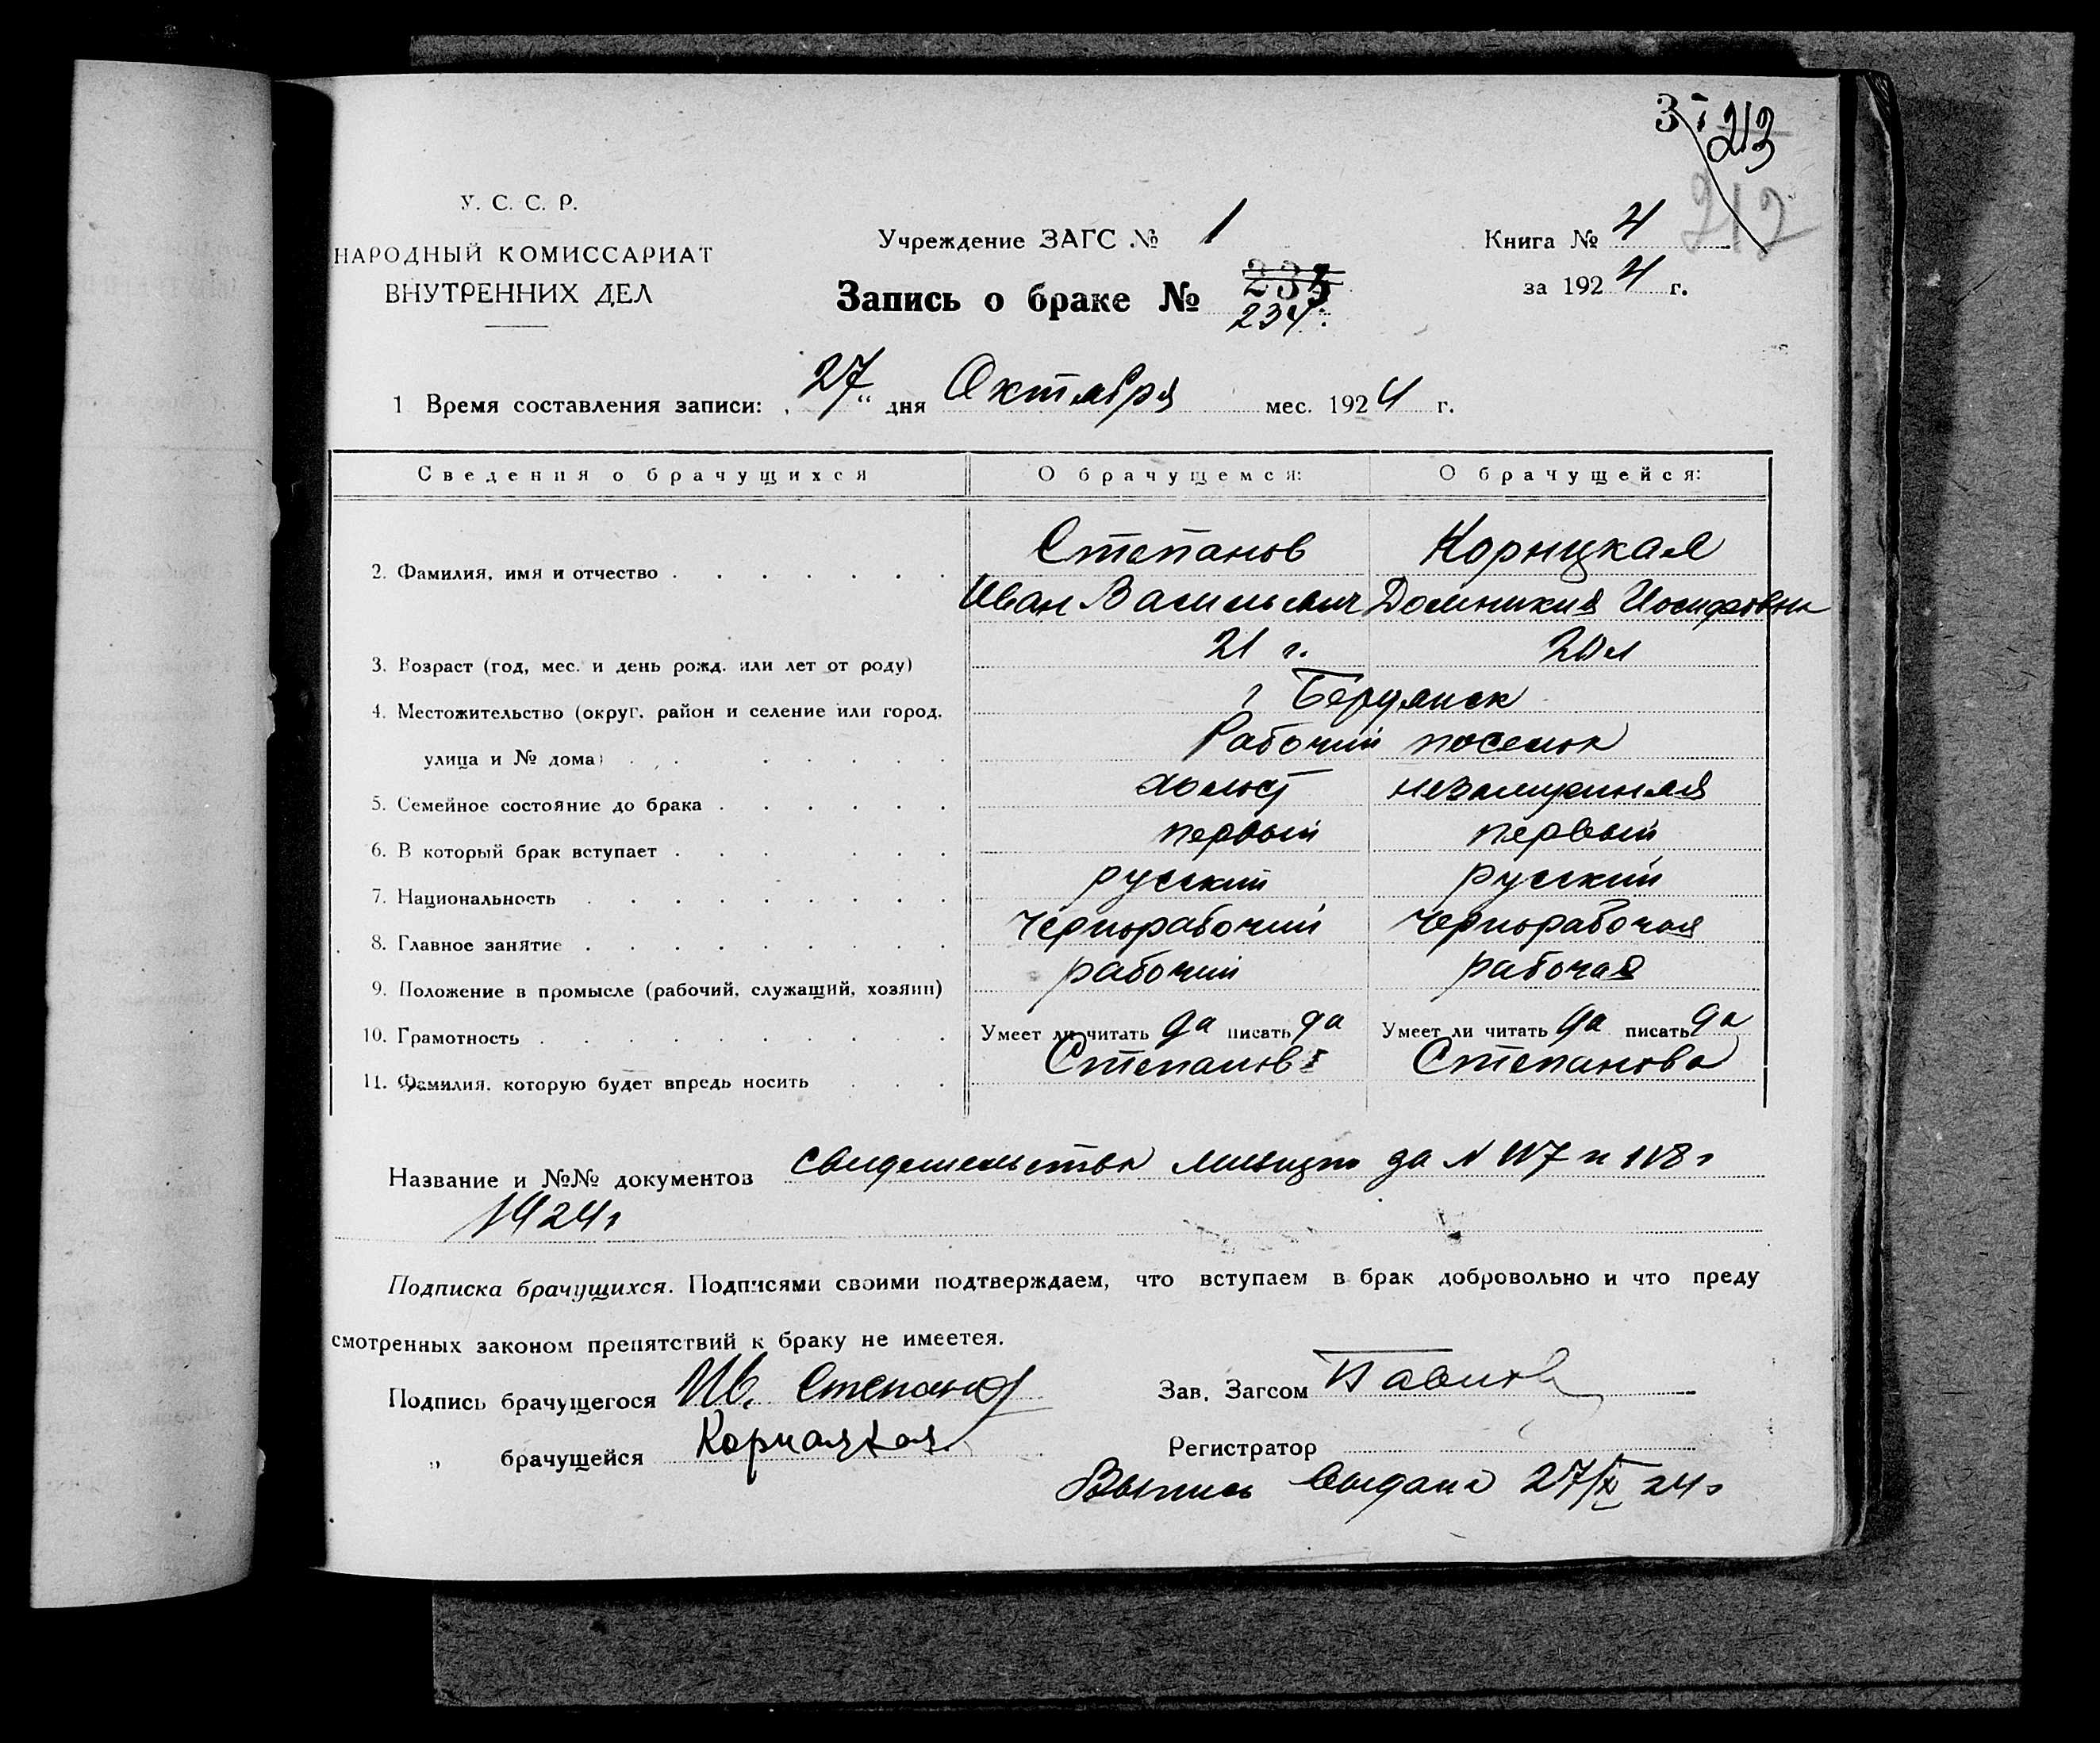 213
212
У. С. С. Р.
НАРОДНЫЙ КОМИССАРИАТ
ВНУТРЕННИХ ДЕЛ
Учреждение ЗАГС № 1
Книга № 4
за 1924 г.
Запись о браке №
234.
1 Время составления записи: „27“ дня Октября мес. 1924 г.
Сведения о брачущихся О брачущемся: О брачущейся:
2. Фамилия, имя и отчество Степанов Корницкая
Иван Васильевич Домникия Иосифовна
3. Возраст (год, мес. и день рожд. или лет от роду) 21 г. 20 л
4. Местожительство (округ, район и селение или город, г Бердянск
улица и № дома) Рабочий поселок
5. Семейное состояние до брака холост незамужняя
6. В который брак вступает первый первый
7. Национальность русский русский
8. Главное занятие чернорабочий чернорабочая
9. Положение в промысле (рабочий, служащий, хозяин) рабочий рабочая
10. Грамотность Умеет ли читать да писать да Умеет ли читать да писать да
11. Фамилия, которую будет впредь носить Степанов Степанова
Название и №№ документов свидетельства милиции за N 117 и 118 г
1924 г
Подписка брачущихся. Подписями своими подтверждаем, что вступаем в брак добровольно и что преду
смотренных законом препятствий к браку не имеется.
Подпись брачущегося Ив. Степанов
Зав. Загсом
„ брачущейся
Регистратор
Выпись выдана 27/X 24 г